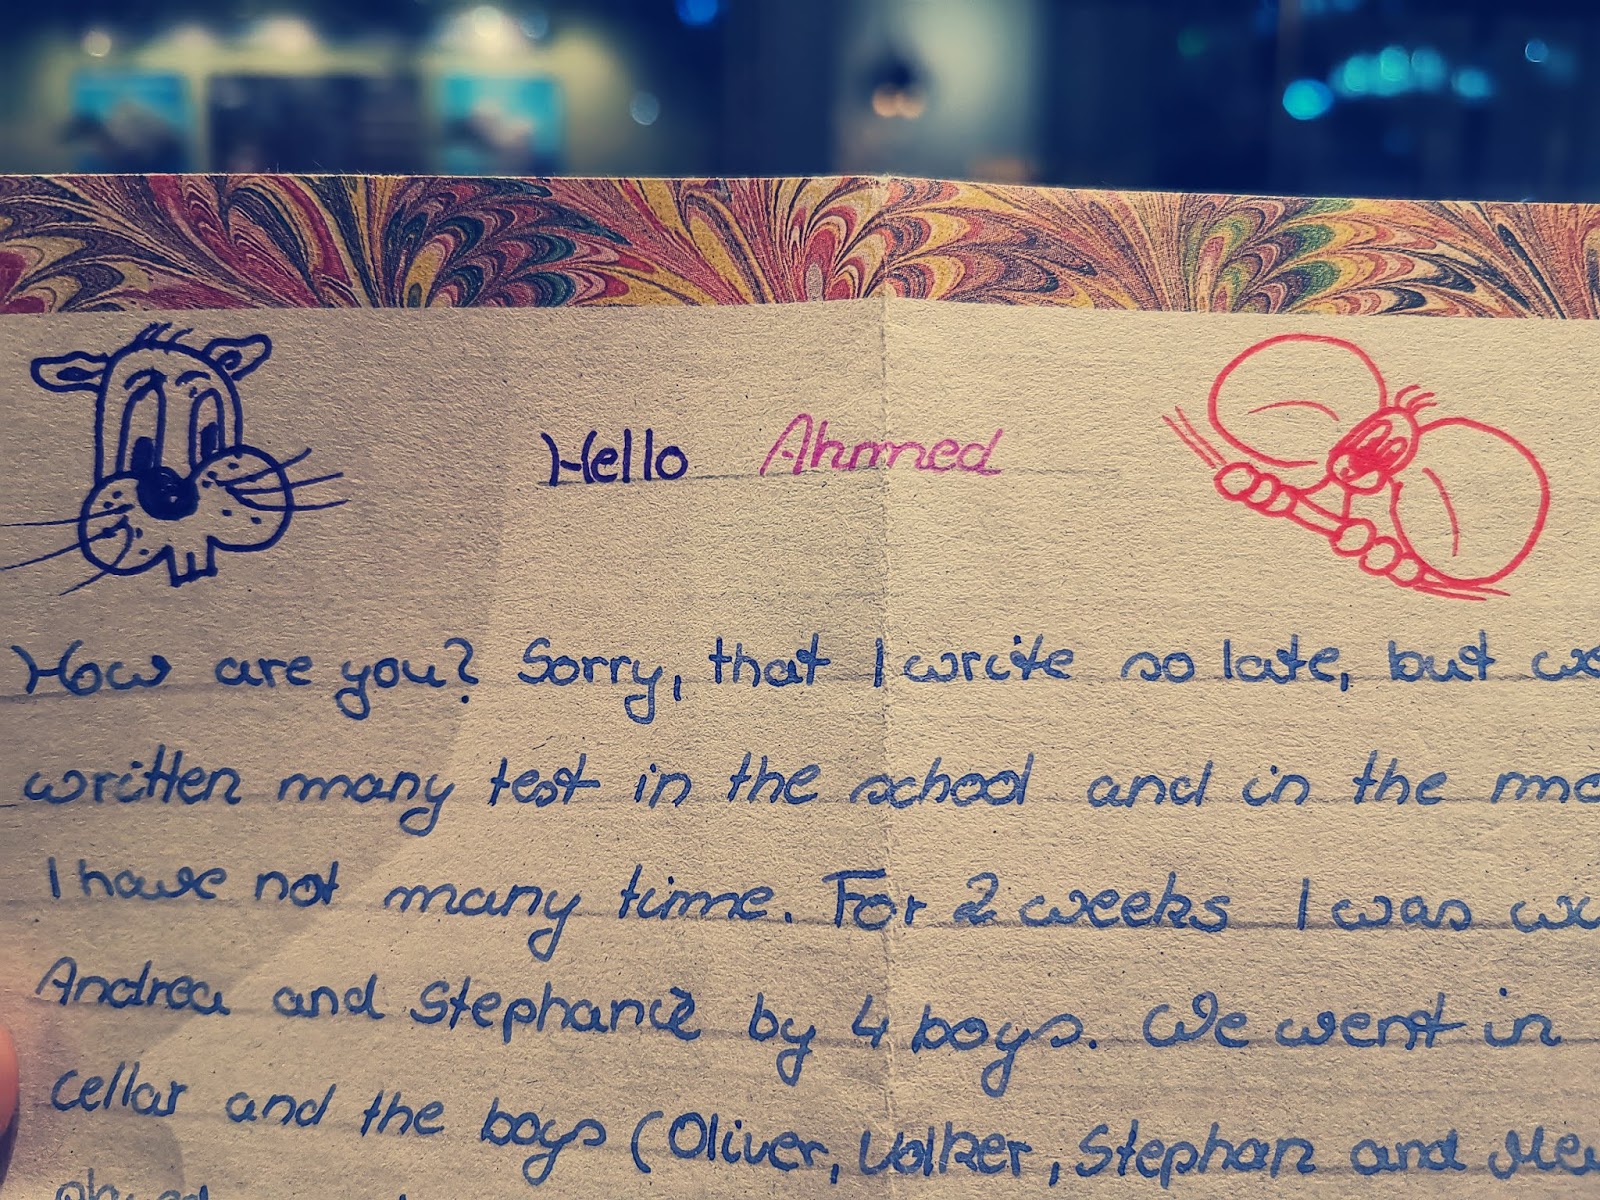 Hello Ahmed
How are you? Sorry, that I write so late, but we
written many test in the school and in the
I have not many time. For 2 weeks I was
Andrea and Stephanie by 4 boys. We went in
cellar and the boys (Oliver, Volker, Stephan and
played